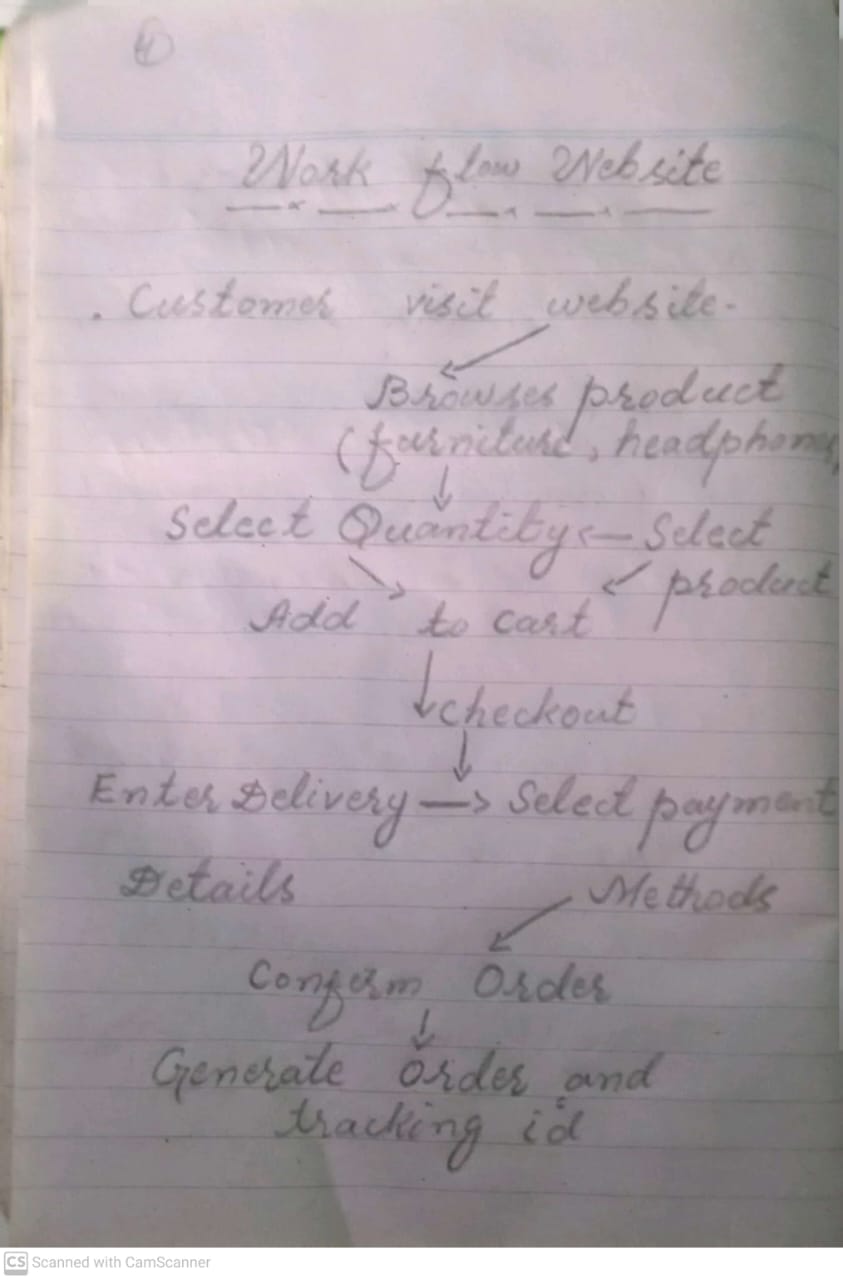 4
Work flow Website
. Customer visit website.
Browses product
(furniture, headphones,
Select Quantity <— Select
product
Add to cart
checkout
Enter Delivery —> Select payment
Details Methods
Conferm Order
Generate Order and
tracking id
CS Scanned with CamScanner